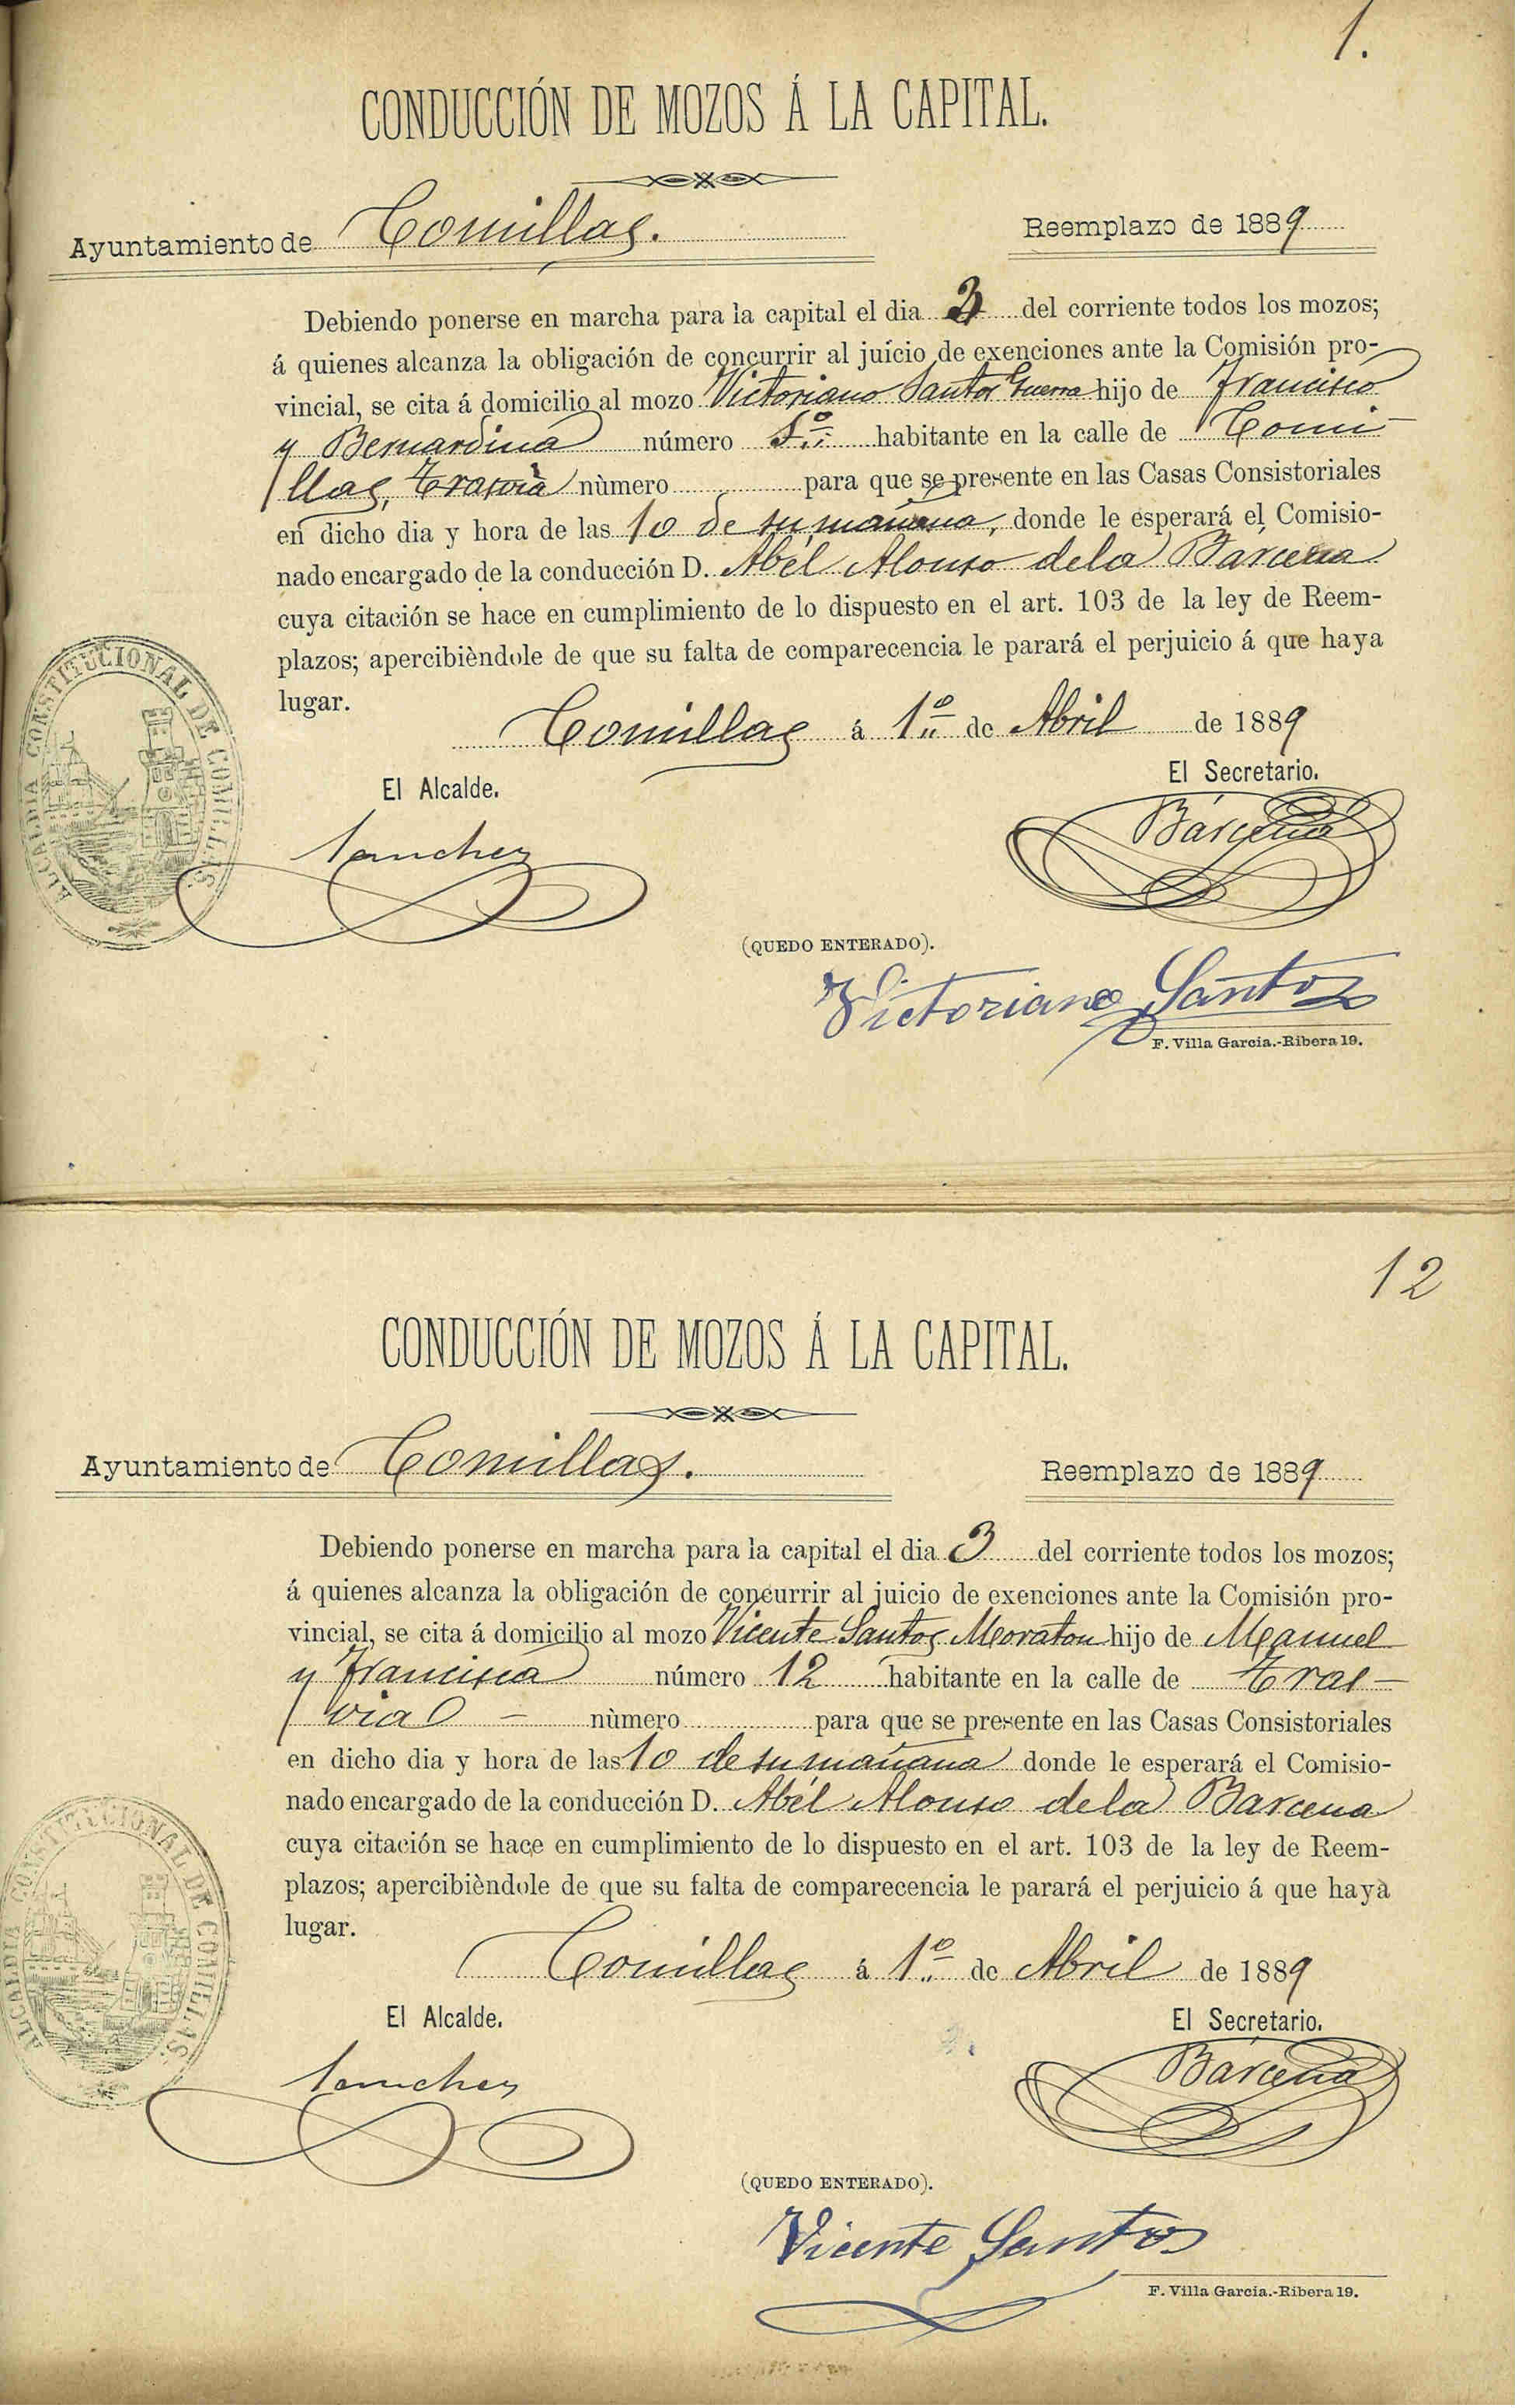 1.
CONDUCCIÓN DE MOZOS Á LA CAPITAL.
Ayuntamiento de Comillas. Reemplazo de 1889
Debiendo ponerse en marcha para la capital el dia 3 del corriente todos los mozos;
á quienes alcanza la obligación de concurrir al juicio de exenciones ante la Comisión pro-
vincial, se cita á domicilio al mozo Victoriano Santos Guerra hijo de Francisco
y Bernardina número 1.º habitante en la calle de Comi
llas, Trasvia nùmero para que se presente en las Casas Consistoriales
en dicho dia y hora de las 10 de su mañana, donde le esperará el Comisio-
nado encargado de la conducción D. Abél Alonso de la Bárcena
cuya citación se hace en cumplimiento de lo dispuesto en el art. 103 de la ley de Reem-
plazos; apercibièndole de que su falta de comparecencia le parará el perjuicio á que haya
lugar.
Comillas á 1.º de Abril de 1889
El Alcalde. El Secretario.
Sanchez Bárcena
ALCALDIA CONSTITUCIONAL DE COMILLAS.
(QUEDO ENTERADO).
Victoriano Santos
F. Villa García.-Ribera 19.
12
CONDUCCIÓN DE MOZOS Á LA CAPITAL.
Ayuntamiento de Comillas. Reemplazo de 1889
Debiendo ponerse en marcha para la capital el dia 3 del corriente todos los mozos;
á quienes alcanza la obligación de concurrir al juicio de exenciones ante la Comisión pro-
vincial, se cita á domicilio al mozo Vicente Santos Moraton hijo de Manuel
y Francisca número 12 habitante en la calle de Tras-
via - nùmero para que se presente en las Casas Consistoriales
en dicho dia y hora de las 10 de su mañana donde le esperará el Comisio-
nado encargado de la conducción D. Abél Alonso de la Barcena
cuya citación se hace en cumplimiento de lo dispuesto en el art. 103 de la ley de Reem-
plazos; apercibièndole de que su falta de comparecencia le parará el perjuicio á que haya
lugar.
Comillas á 1.º de Abril de 1889
El Alcalde. El Secretario.
Sanchez Bárcena
ALCALDIA CONSTITUCIONAL DE COMILLAS.
(QUEDO ENTERADO).
Vicente Santos
F. Villa García.-Ribera 19.